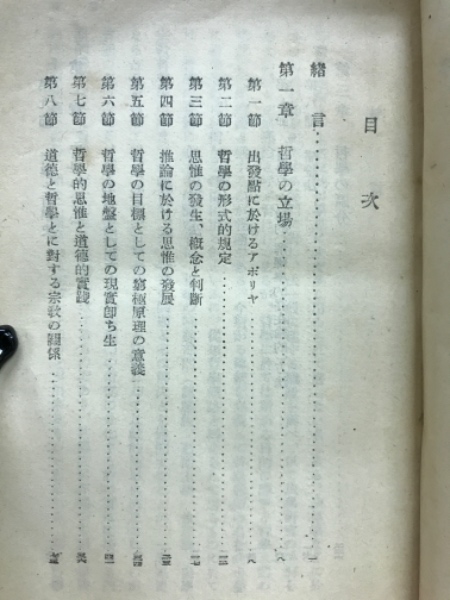 目次
緒言
第一章 哲學の立場
第一節 出發點に於けるアポリヤ
第二節 哲學の形式的規定
第三節 思惟の發生、概念と判斷
第四節 推論に於ける思惟の發展
第五節 哲學の目標としての窮極原理の意義
第六節 哲學の地盤としての現實卽ち生
第七節 哲學的思惟と道德的實踐
第八節 道德と哲學とに對する宗敎の關係